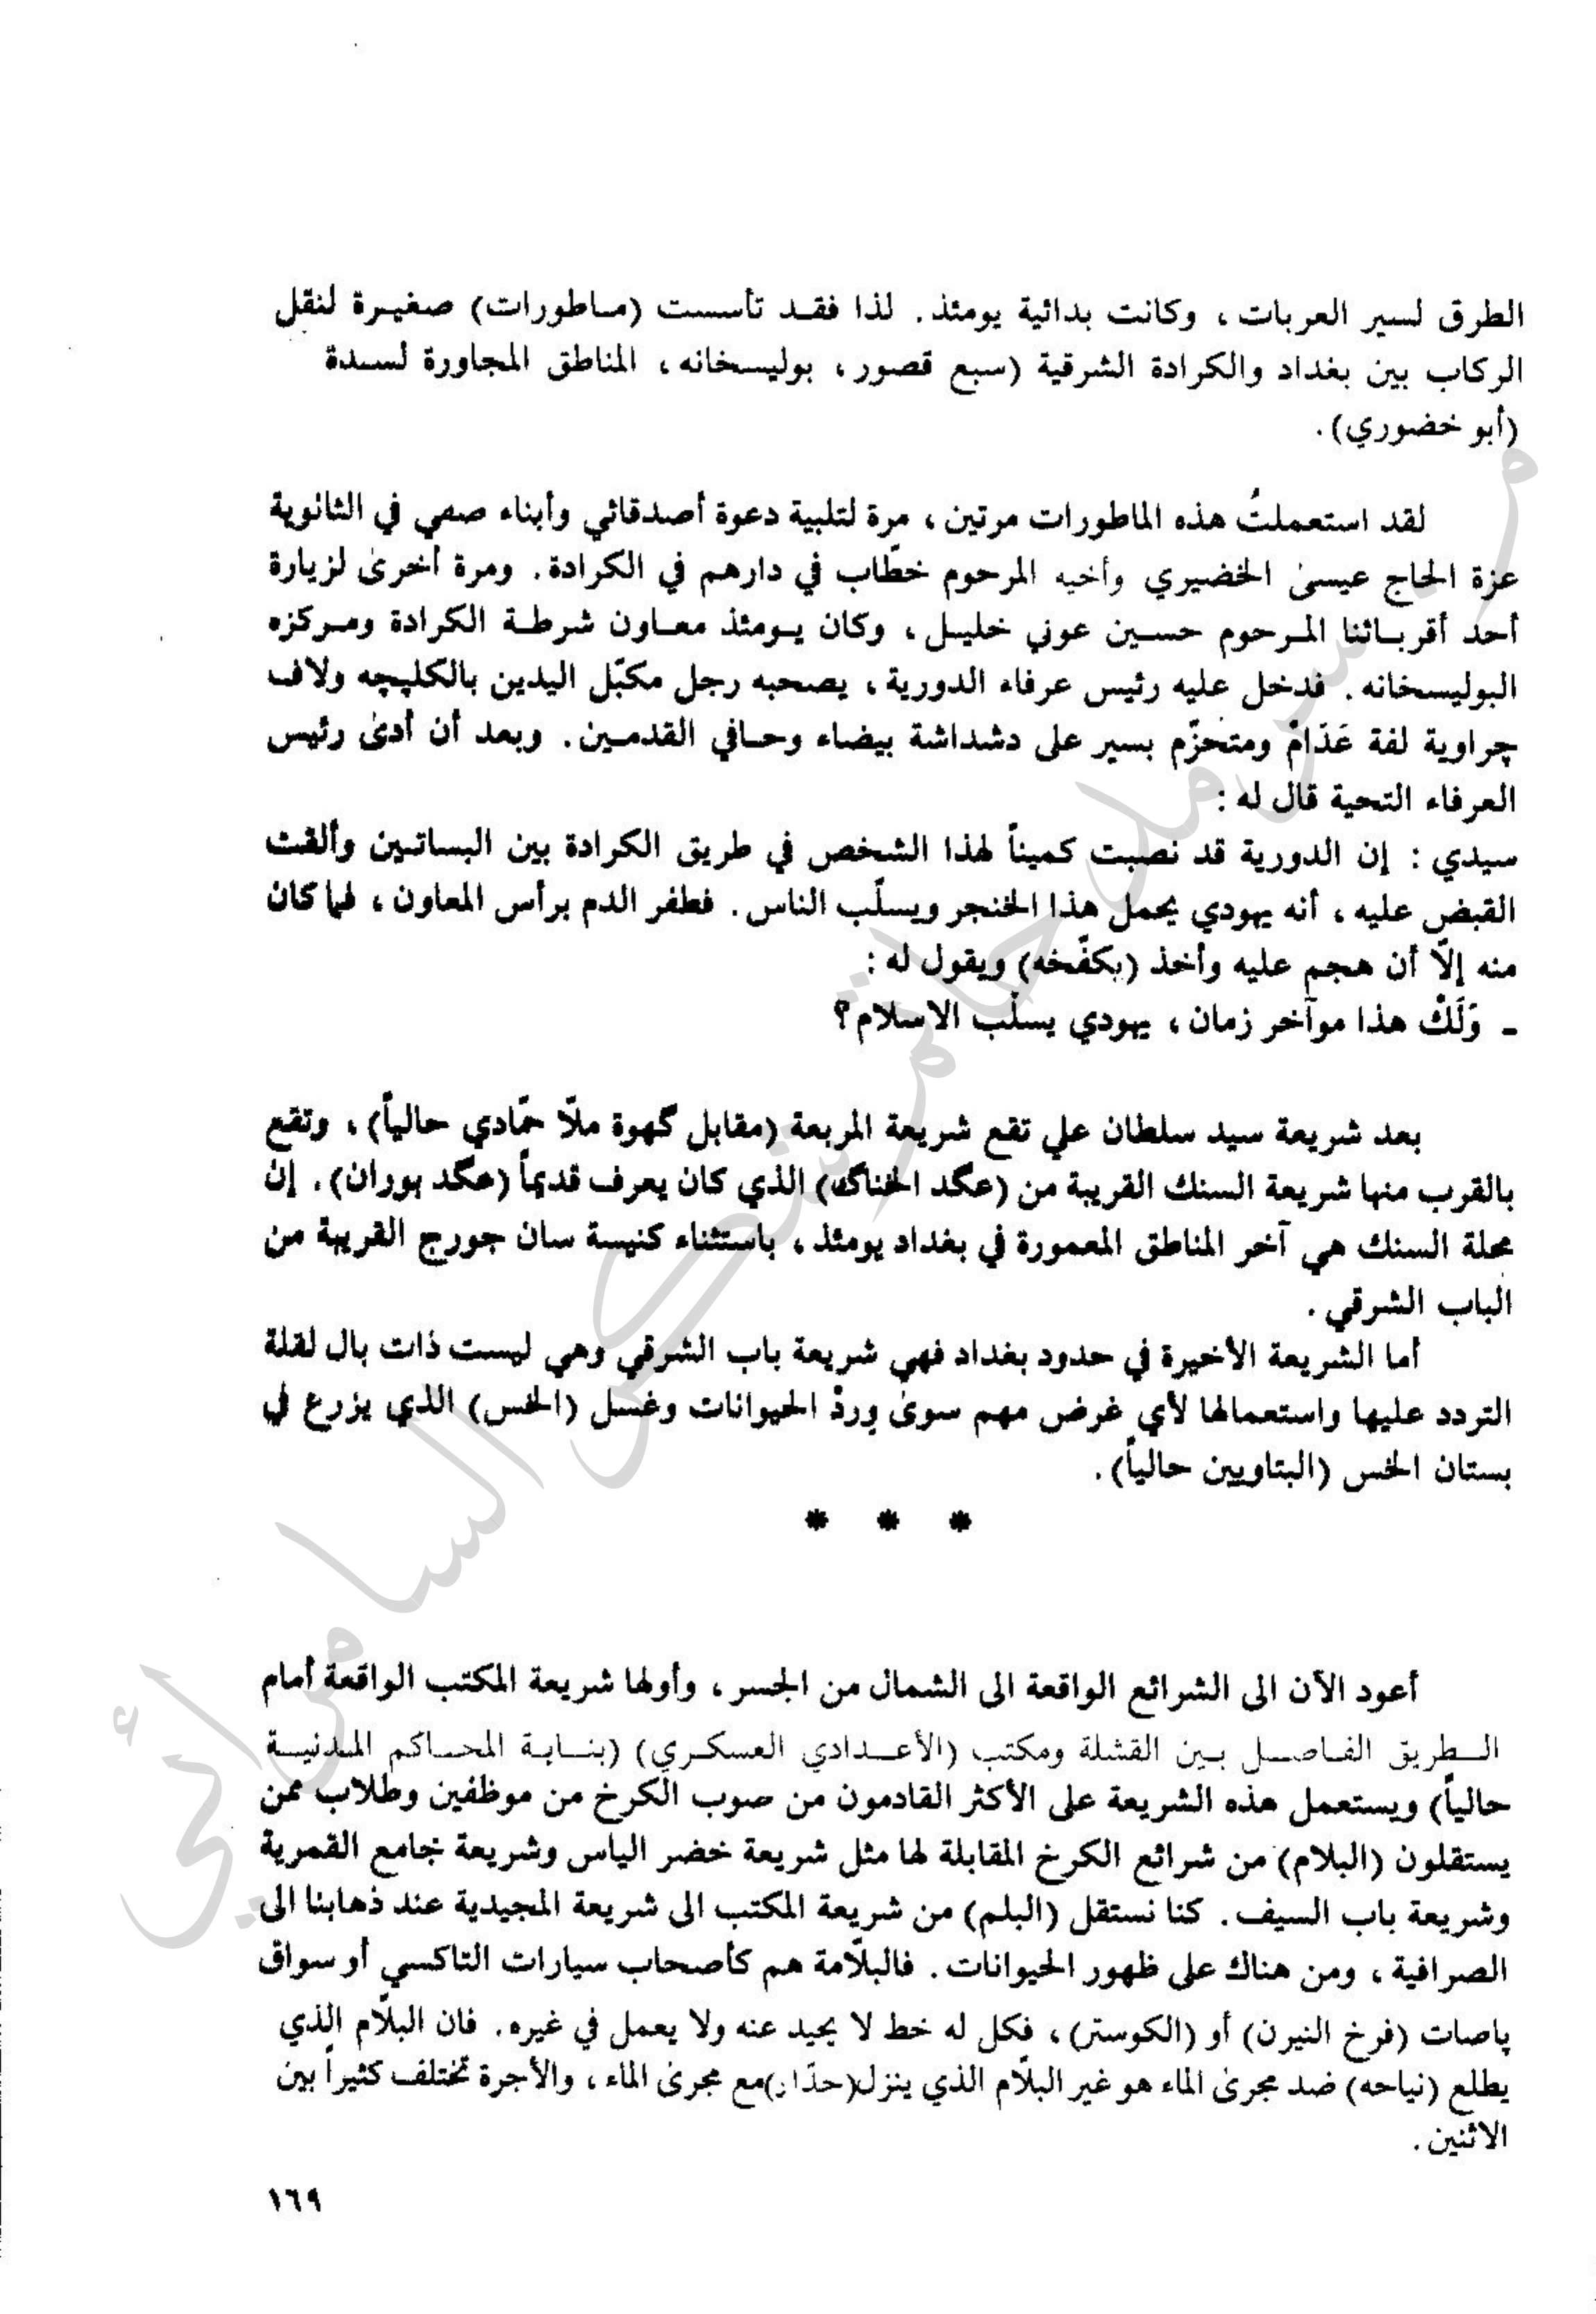 الطرق لسير العربات ، وكانت بدائية يومئذ . لذا فقد تأسست (ماطورات) صغيرة لنقل
الركاب بين بغداد والكرادة الشرقية (سبع قصور ، بوليسخانه ، المناطق المجاورة لسدة
(أبو خضوري) .
لقد استعملتُ هذه الماطورات مرتين ، مرة لتلبية دعوة أصدقائي وأبناء صفي في الثانوية
عزة الحاج عيسىٰ الخضيري وأخيه المرحوم خطّاب في دارهم في الكرادة . ومرة أخرىٰ لزيارة
أحد أقربائنا المرحوم حسين عوني خليل ، وكان يومئذ معاون شرطة الكرادة ومركزه
البوليسخانه . فدخل عليه رئيس عرفاء الدورية ، يصحبه رجل مكبّل اليدين بالكلپچه ولاف
چراوية لفة عَدَامْ ومتحزّم بسير على دشداشة بيضاء وحافي القدمين . وبعد أن أدىٰ رئيس
العرفاء التحية قال له :
سيدي : إن الدورية قد نصبت كميناً لهذا الشخص في طريق الكرادة بين البساتين وألقت
القبض عليه ، أنه يهودي يحمل هذا الخنجر ويسلّب الناس . فطفر الدم برأس المعاون ، فما كان
منه إلاّ أن هجم عليه وأخذ (يكفّخه) ويقول له :
ـ وَلَكْ هذا موآخر زمان ، يهودي يسلّب الاسلام ؟
بعد شريعة سيد سلطان علي تقع شريعة المربعة (مقابل گهوة ملاّ حمّادي حالياً) ، وتقع
بالقرب منها شريعة السنك القريبة من (عگد الخناگه) الذي كان يعرف قديماً (عگد بوران) . إن
محلة السنك هي آخر المناطق المعمورة في بغداد يومئذ ، باستثناء كنيسة سان جورج القريبة من
الباب الشرقي .
أما الشريعة الأخيرة في حدود بغداد فهي شريعة باب الشرقي وهي ليست ذات بال لقلة
التردد عليها واستعمالها لأي غرض مهم سوىٰ وردْ الحيوانات وغسل (الخس) الذي يزرع في
بستان الخس (البتاويين حالياً) .
* * *
أعود الآن الى الشرائع الواقعة الى الشمال من الجسر ، وأولها شريعة المكتب الواقعة أمام
الطريق الفاصل بين القشلة ومكتب (الأعدادي العسكري) (بناية المحاكم المدنية
حالياً) ويستعمل هذه الشريعة على الأكثر القادمون من صوب الكرخ من موظفين وطلاب ممن
يستقلون (البلام) من شرائع الكرخ المقابلة لها مثل شريعة خضر الياس وشريعة جامع القمرية
وشريعة باب السيف . كنا نستقل (البلم) من شريعة المكتب الى شريعة المجيدية عند ذهابنا الى
الصرافية ، ومن هناك على ظهور الحيوانات . فالبلاّمة هم كأصحاب سيارات التاكسي أو سواق
پاصات (فرخ النيرن) أو (الكوستر) ، فكل له خط لا يحيد عنه ولا يعمل في غيره . فان البلاّم الذي
يطلع (نياحه) ضد مجرىٰ الماء هو غير البلاّم الذي ينزل (حدّار) مع مجرىٰ الماء ، والأجرة تختلف كثيراً بين
الاثنين .
١٦٩